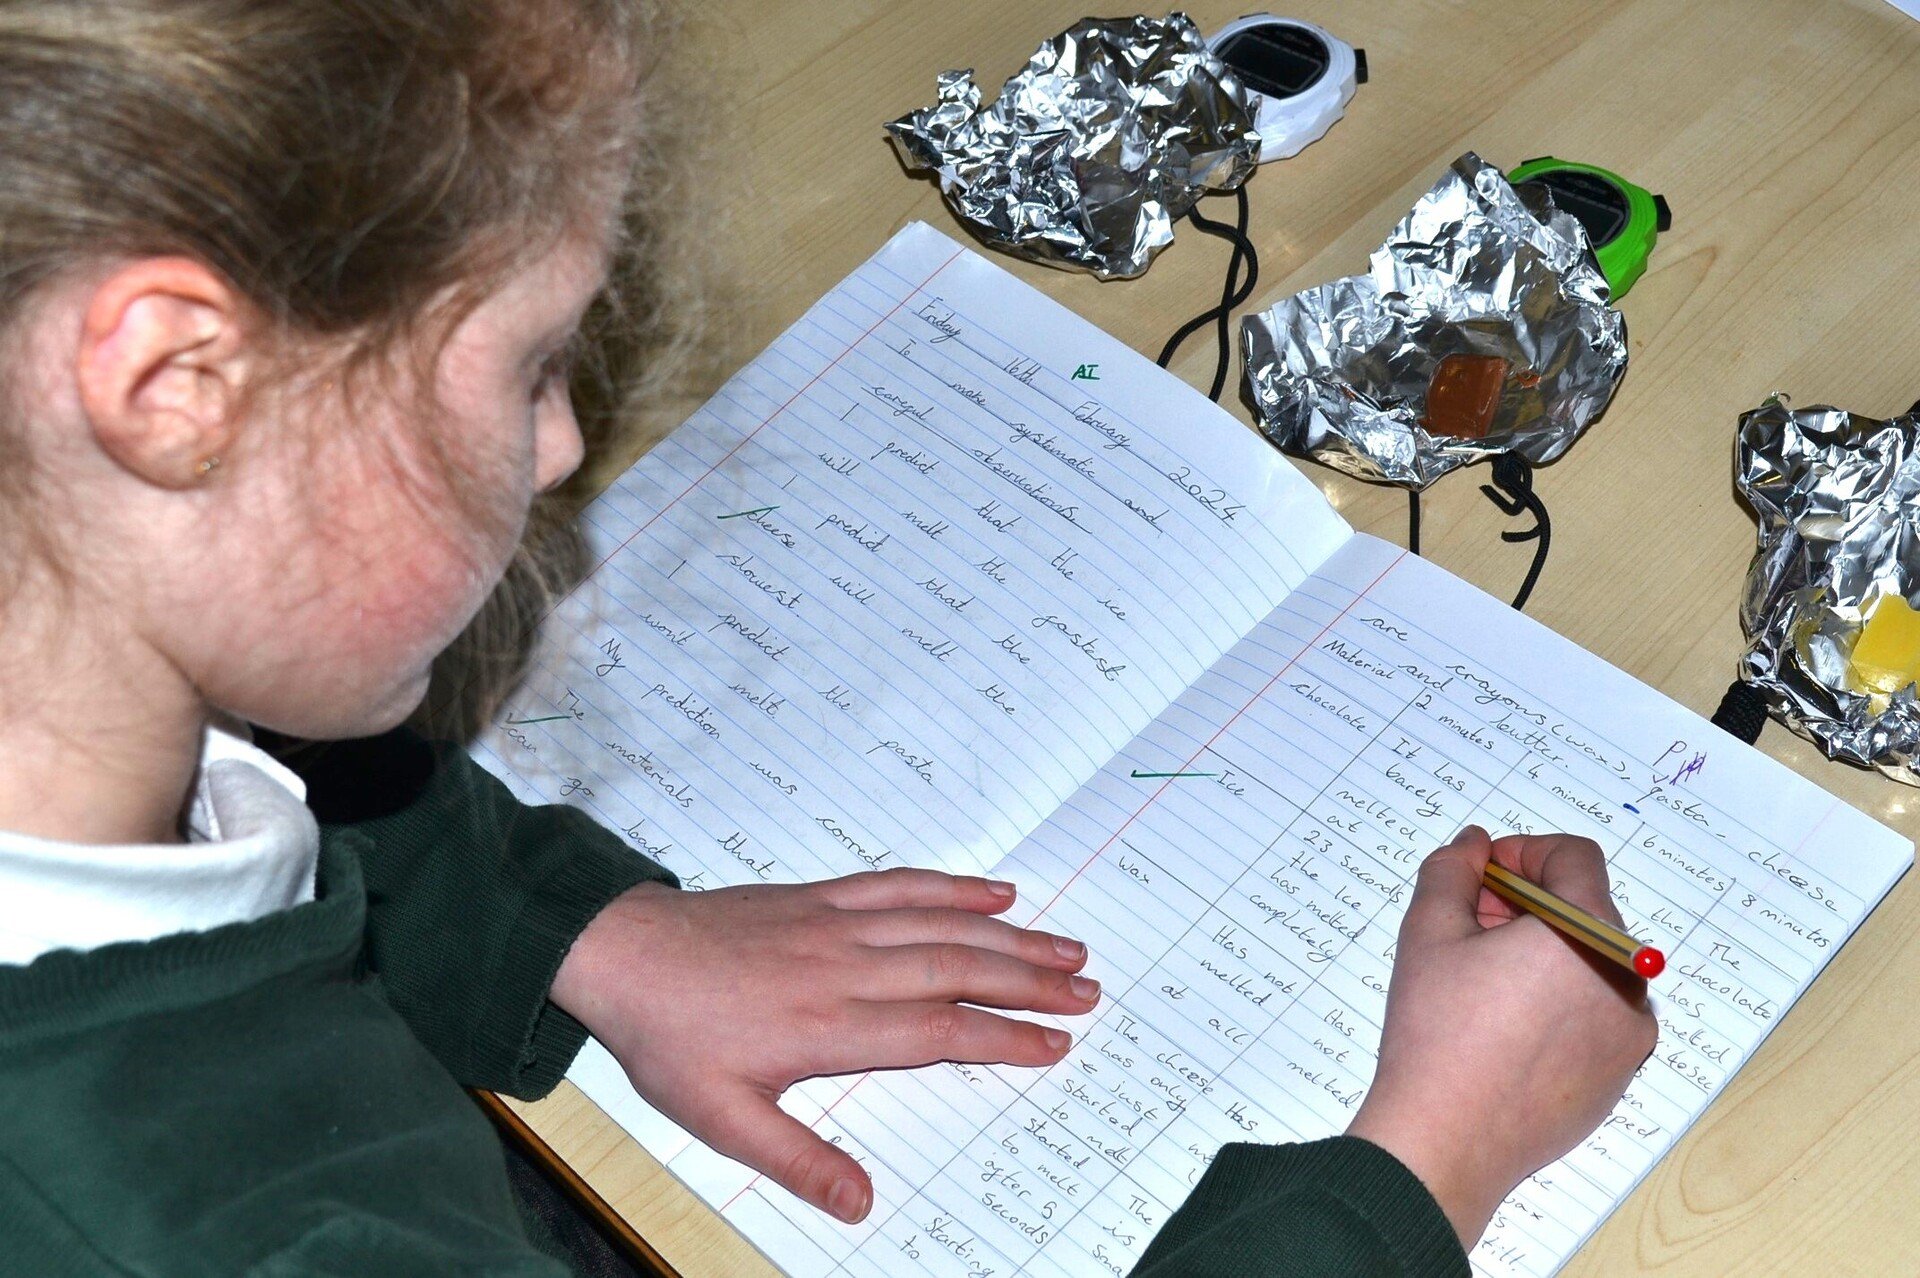 Friday 16th February 2024
AI
To make systematic and
careful observations.
I predict that the ice
will melt the fastest.
I predict that the
cheese will melt the
slowest.
I predict the pasta
won't melt.
My prediction was correct
The materials that
can go back to
are crayons (wax), pasta, cheese
P
and butter.
Material
2 minutes
4 minutes
6 minutes
8 minutes
chocolate
It has
barely
melted
at all
Has
In the
The
chocolate
has
melted
Ice
23 seconds
the Ice
has melted
completely
wax
Has not
melted
at all
Has
not
melted
The cheese
has only
just
started
to melt
Has
started
to melt
after 5
seconds
The
is
Starting
to
in.